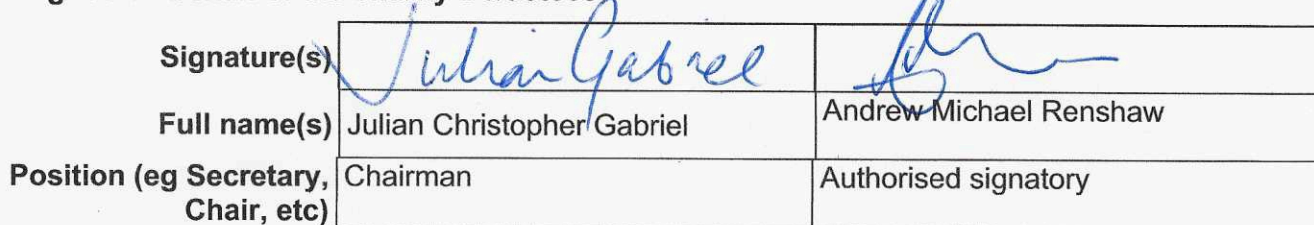 Signature(s) Julian Gabriel
Full name(s) Julian Christopher Gabriel Andrew Michael Renshaw
Position (eg Secretary, Chairman Authorised signatory
Chair, etc)